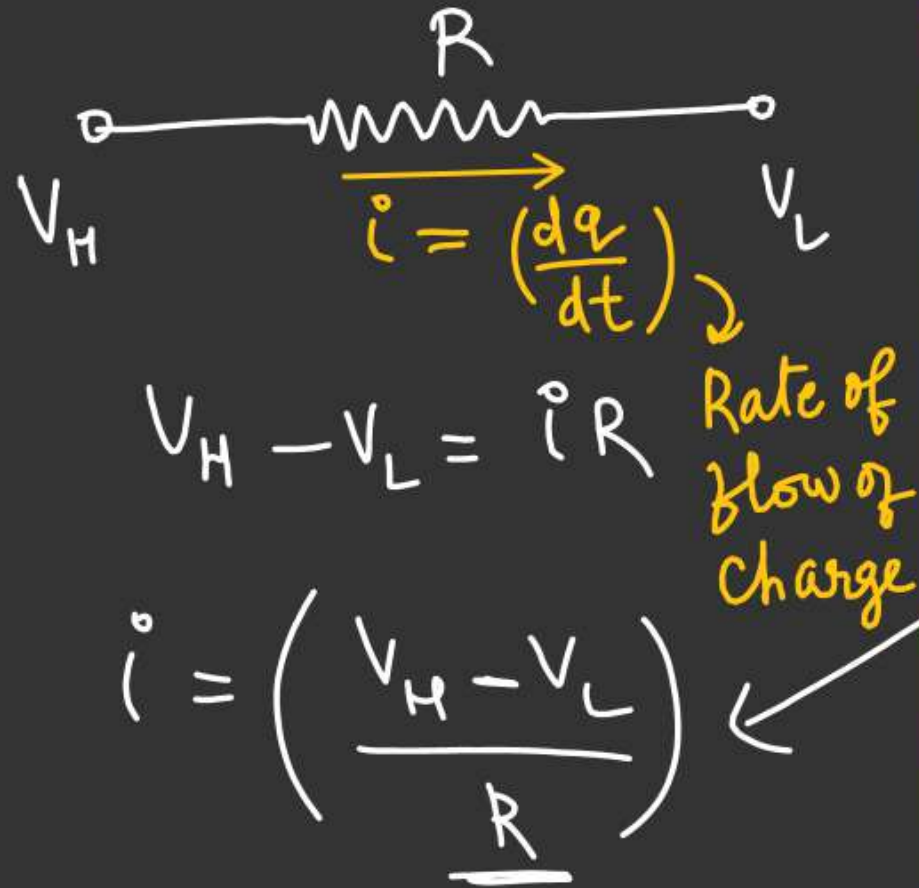 R
V_H
V_L
i = (dq/dt)
Rate of
flow of
Charge
V_H - V_L = iR
i = ((V_H - V_L)/R)